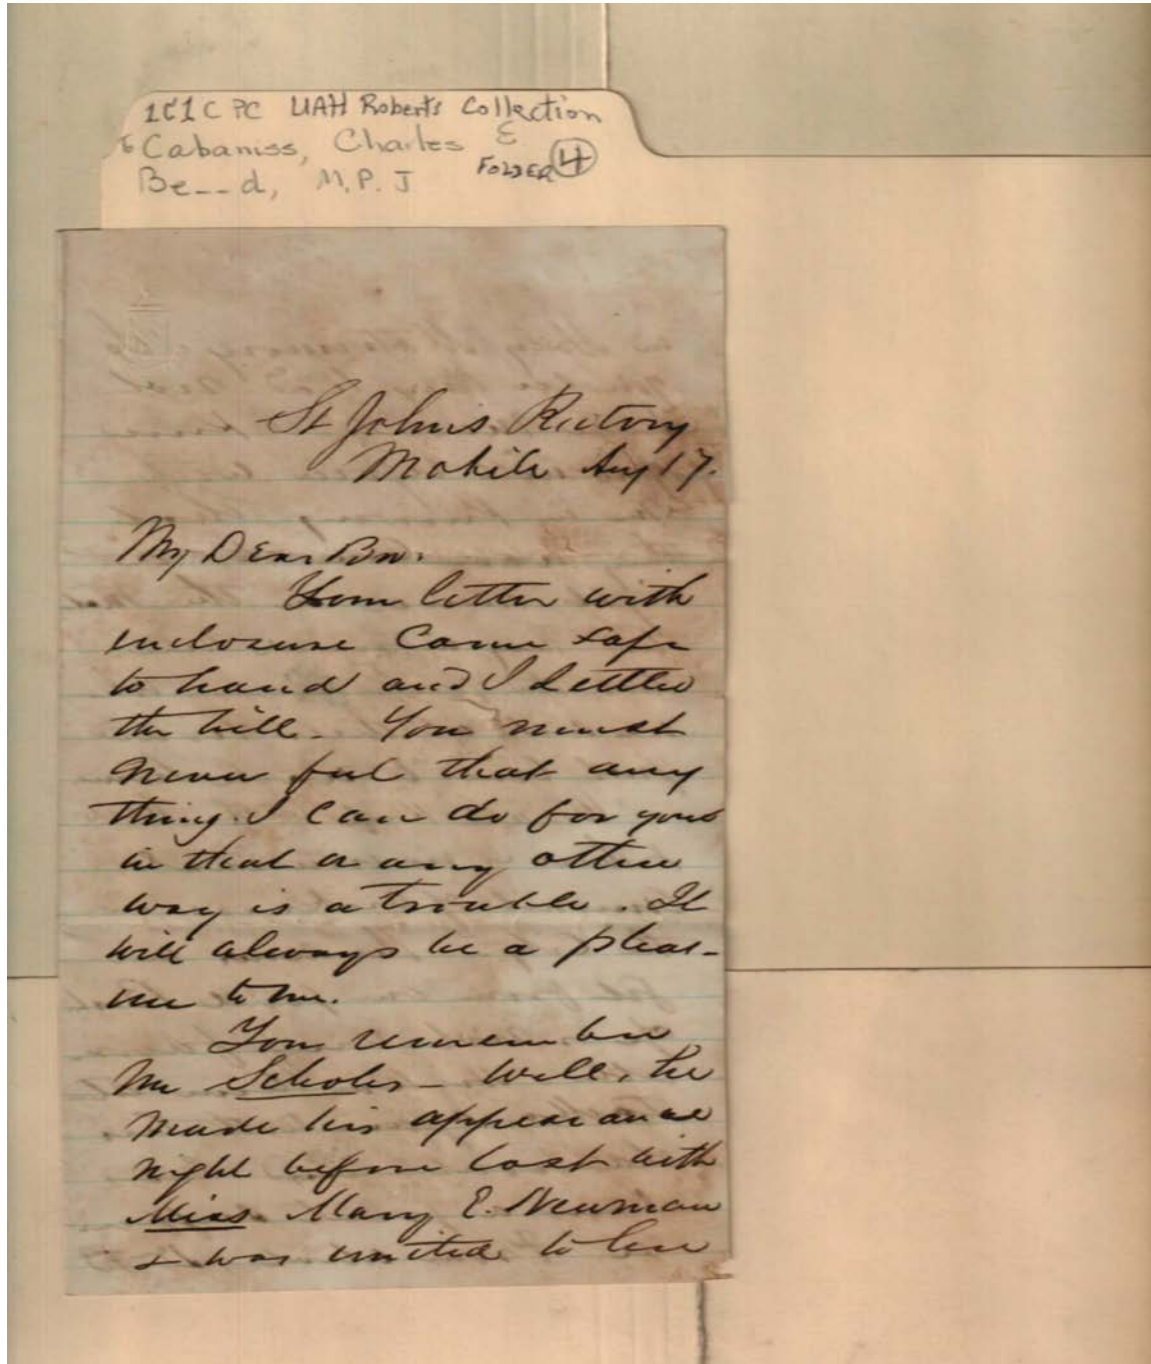 1C1C PC UAH Roberts Collection
Cabaniss, Charles E
Be--d, M.P.J FOLDER 4
St Johns Rectory
Mobile Aug 17.
My Dear Bro.
Your letter with
enclosure came safe
to hand and I settled
the bill. You must
never feel that any
thing I can do for you
in that or any other
way is a trouble. It
will always be a pleas-
ure to me.
You remember
Mr Scholes - Well, he
made his appearance
night before last with
Miss Mary E. Newman
& was united to her